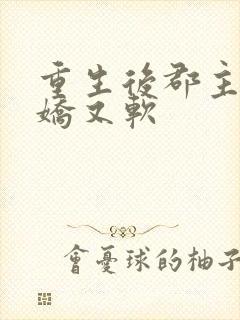 重生後郡主
嬌又軟
會憂球的柚子